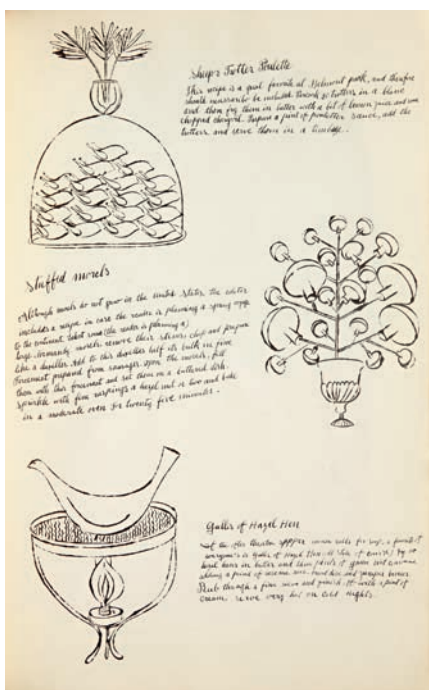 Sheeps Trotter Poulette
This recipe is a great favorite at Belmont park, and therefore
should necessarily be included. Cook 30 trotters in a blanc
and then fry them in butter with a bit of lemon juice and some
chopped. Prepare a pint of poulette sauce, add the
trotters and serve them in a timbale.
Stuffed morels
Although morels do not grow in the United States, the editor
includes a recipe in case the reader is planning a spring voyage
to the continent. Select some (the reader is planning a)
large. remove their stems chop and prepare
like a duxelles. Add to this duxelles half its bulk in fine
forcemeat prepared from sausages. Open the morels, fill
them with this forcemeat and set them in a buttered dish.
Sprinkle with fine raspings a hazel nut or two and bake
in a moderate oven for twenty five minutes.
Gullet of Hazel Hen
of the after theatre supper. a favorite of
everyone's is Gullet of Hazel Hen. Fry
hazel hens in butter and
adding a pint of
Rub through a fine sieve and finish it with a pint of
cream. serve very hot on cold nights.